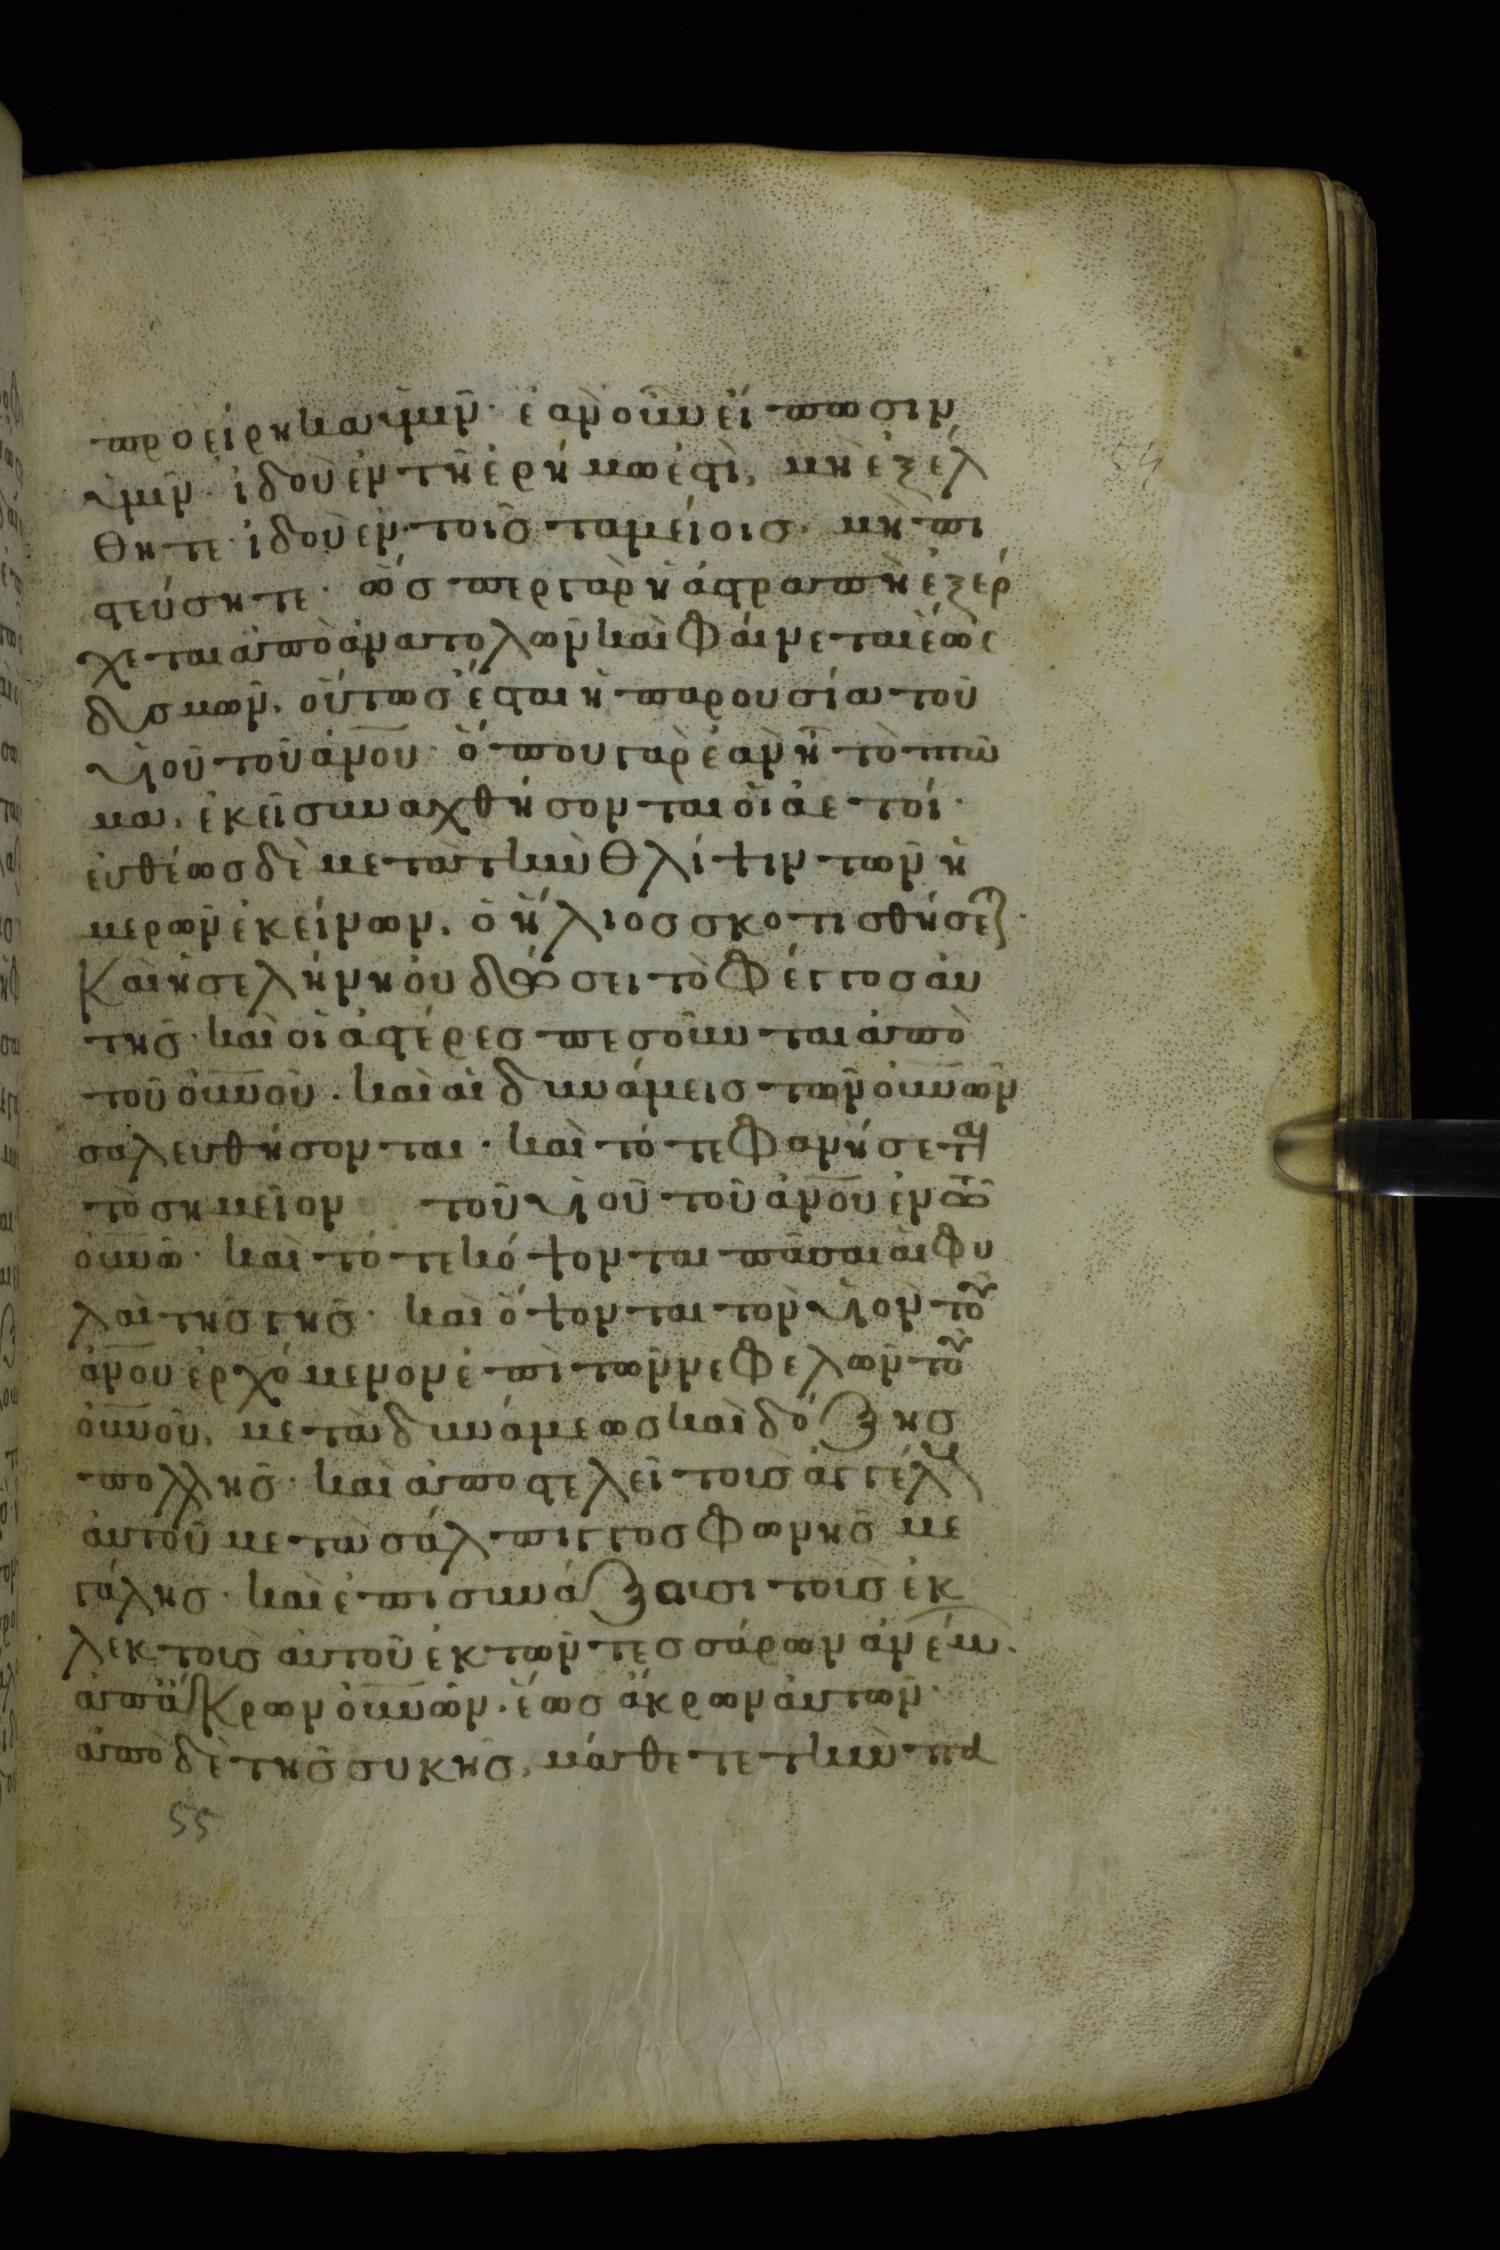 προείρηκα ὑμῖν· ἐὰν οὖν εἴπωσιν
ὑμῖν· ἰδοὺ ἐν τῆ ἐρήμω ἐστὶ, μὴ ἐξέλ
θητε· ἰδοὺ ἐν τοῖς ταμείοις· μὴ πι
στεύσητε· ὥσπερ γὰρ ἡ ἀστραπὴ ἐξέρ
χεται ἀπὸ ἀνατολῶν καὶ φαίνεται ἕως
δυσμῶν, οὕτως ἔσται ἡ παρουσία τοῦ
υἱοῦ τοῦ ἀνου· ὅπου γὰρ ἐὰν ἦ τὸ πτῶ
μα, ἐκεῖ συναχθήσονται οἱ ἀετοί·
εὐθέως δὲ μετὰ τὴν θλίψιν τῶν ἡ
μερῶν ἐκείνων, ὁ ἥλιος σκοτισθήσεται·
Καὶ ἡ σελήνη οὐ δώσει τὸ φέγγος αὐ
τῆς· καὶ οἱ ἀστέρες πεσοῦνται ἀπὸ
τοῦ οὐνοῦ· καὶ αἱ δυνάμεις τῶν οὐνῶν
σαλευθήσονται· καὶ τότε φανήσεται
τὸ σημεῖον τοῦ υἱοῦ τοῦ ἀνου ἐν τῶ
οὐνῶ· καὶ τότε κόψονται πᾶσαι αἱ φυ
λαὶ τῆς γῆς· καὶ ὄψονται τὸν υἱὸν τοῦ
ἀνου ἐρχόμενον ἐπὶ τῶν νεφελῶν τοῦ
οὐνοῦ, μετὰ δυνάμεως καὶ δόξης
πολλῆς· καὶ ἀποστελεῖ τοὺς ἀγγέλους
αὐτοῦ μετὰ σάλπιγγος φωνῆς με
γάλης· καὶ ἐπισυνάξουσι τοὺς ἐκ
λεκτοὺς αὐτοῦ ἐκ τῶν τεσσάρων ἀνέμων·
ἀπ' ἄκρων οὐνῶν· ἕως ἄκρων αὐτῶν·
ἀπὸ δὲ τῆς συκῆς, μάθετε τὴν πα
55
54